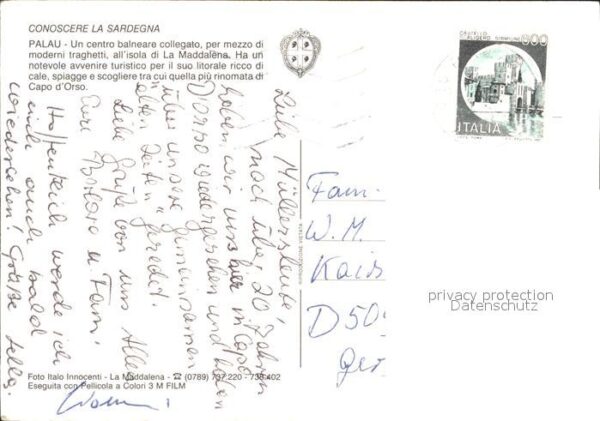 CONOSCERE LA SARDEGNA
PALAU - Un centro balneare collegato, per mezzo di
moderni traghetti, all'isola di La Maddalena. Ha un
notevole avvenire turistico per il suo litorale ricco di
cale, spiagge e scogliere tra cui quella più rinomata di
Capo d'Orso.
Liebe Müllersleute,
nach über 20 Jahren
haben wir uns hier in Capo
D'orso wiedergesehen und haben
über unsere gemeinsamen
"alten Zeiten" geredet.
Liebe Grüße von uns Allen
Eure Barbara u. Fam.
Hoffentlich werde ich
euch auch bald
wiedersehen! Grüße
Foto Italo Innocenti - La Maddalena - ☎ (0789) 737.220 - 738.402
Eseguita con Pellicola a Colori 3 M FILM
RIPRODUZIONE VIETATA
CASTELLO
SCALIGERO SIRMIONE
800
ITALIA
Fam.
W. M.
Kais
D 50
Ger
privacy protection
Datenschutz